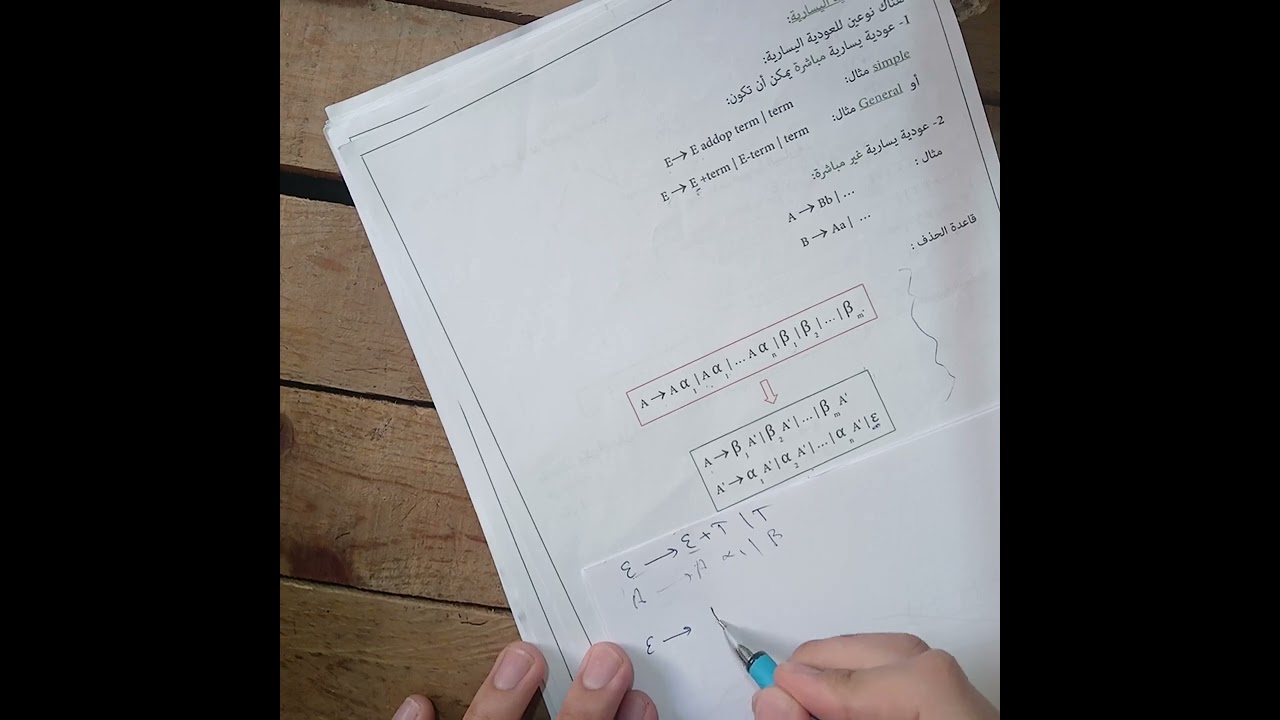 اليسارية:
هناك نوعين للعودية اليسارية:
1- عودية يسارية مباشرة يمكن أن تكون:
simple مثال:
E→ E addop term | term
أو General مثال:
E → E +term | E-term | term
2- عودية يسارية غير مباشرة:
مثال :
A → Bb | ...
B → Aa | ...
قاعدة الحذف :
A → A α₁ | A α₁ | ... A αₙ | β₁ | β₂ | ... | βₘ
A → β₁ A' | β₂ A' | ... | βₘ A'
A' → α₁ A' | α₂ A' | ... | αₙ A' | ε
ε → ε + T | T
A → A α₁ | β
ε →